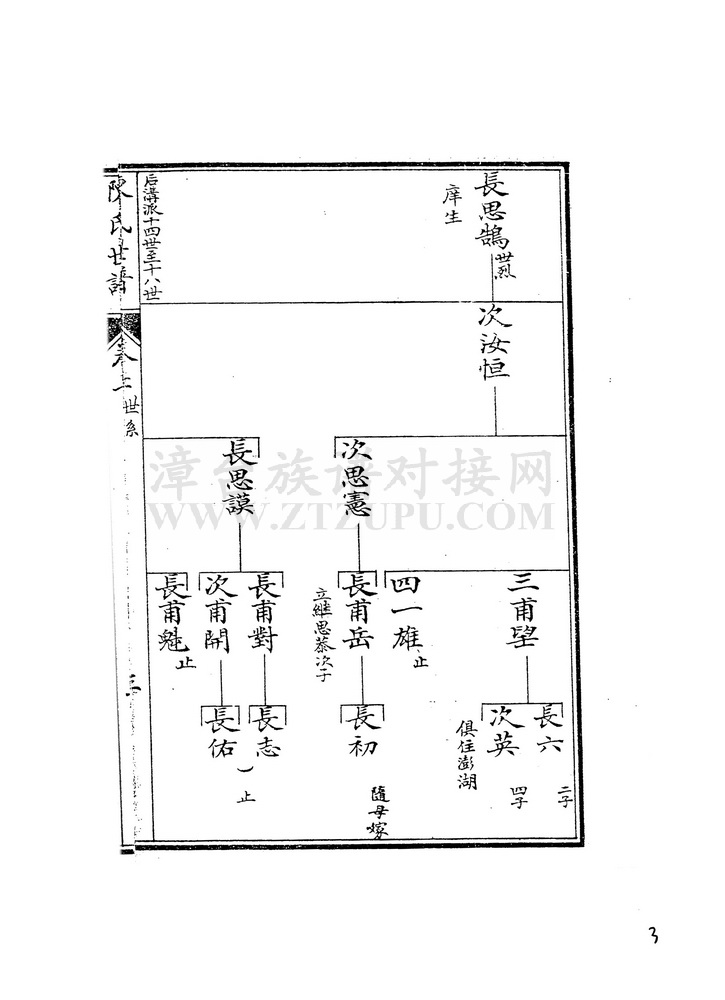 長思鵠
世烈
庠生
后溝派十四世至十八世
次汝恒
次思憲
長思謨
三甫望
四一雄
止
長甫岳
立継思恭次子
長甫對
次甫開
長甫魁
止
長六
二子
次英
四子
俱住澎湖
長初
隨母嫁
長志
長佑
止
陳氏世譜
卷上
世系
三
漳台族谱对接网
WWW.ZTZUPU.COM
3